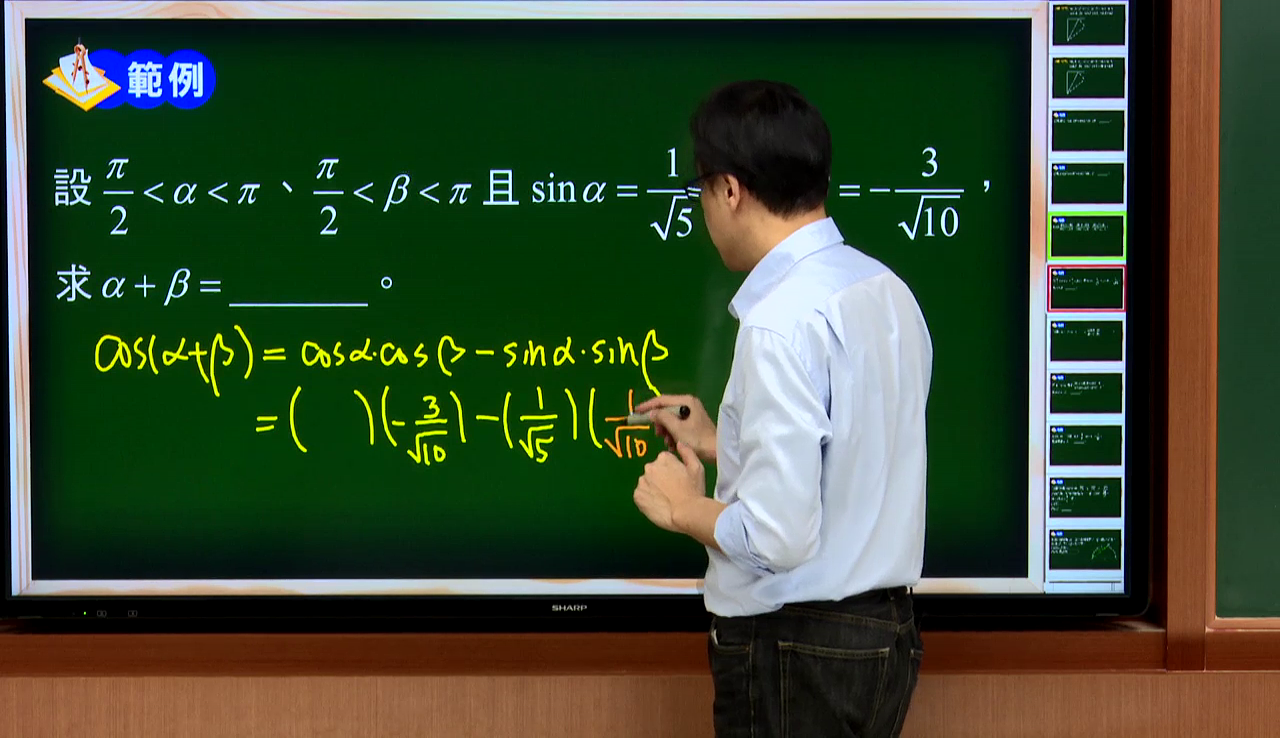 範例
設 π/2 < α < π 、 π/2 < β < π 且 sin α = 1/√5 = − 3/√10 ，
求 α + β = ________ 。
cos(α+β) = cosα·cosβ − sinα·sinβ
= ( )(− 3/√10) − (1/√5)(1/√10
SHARP